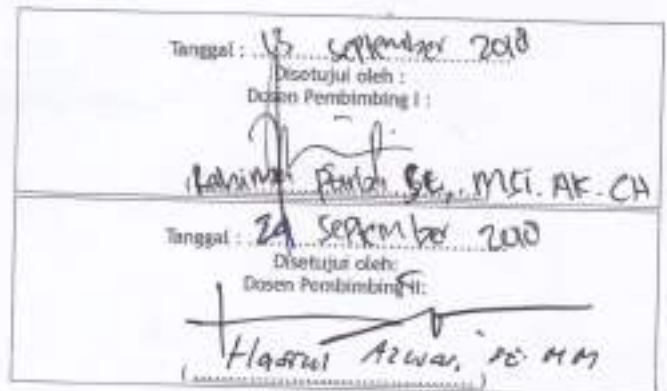 Tanggal : 13 September 2018
Disetujui oleh :
Dosen Pembimbing I :
SE, MSi. AK. CA
Tanggal : 24 September 2018
Disetujui oleh:
Dosen Pembimbing II:
Azwar, SE. MM